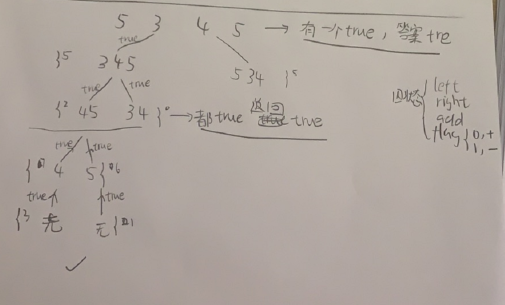 5 3 4 5 → 有一个true，答案tre
true
}5 345 534 }
true true
}2 45 34 } → 都true 返回 true
true true
4 5
true true
}3 无 无
left
right
add
flag { 0, +
1, -